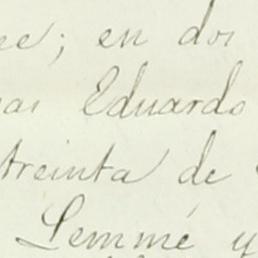 ce; en dos
nas Eduardo
treinta de
Lemmé y